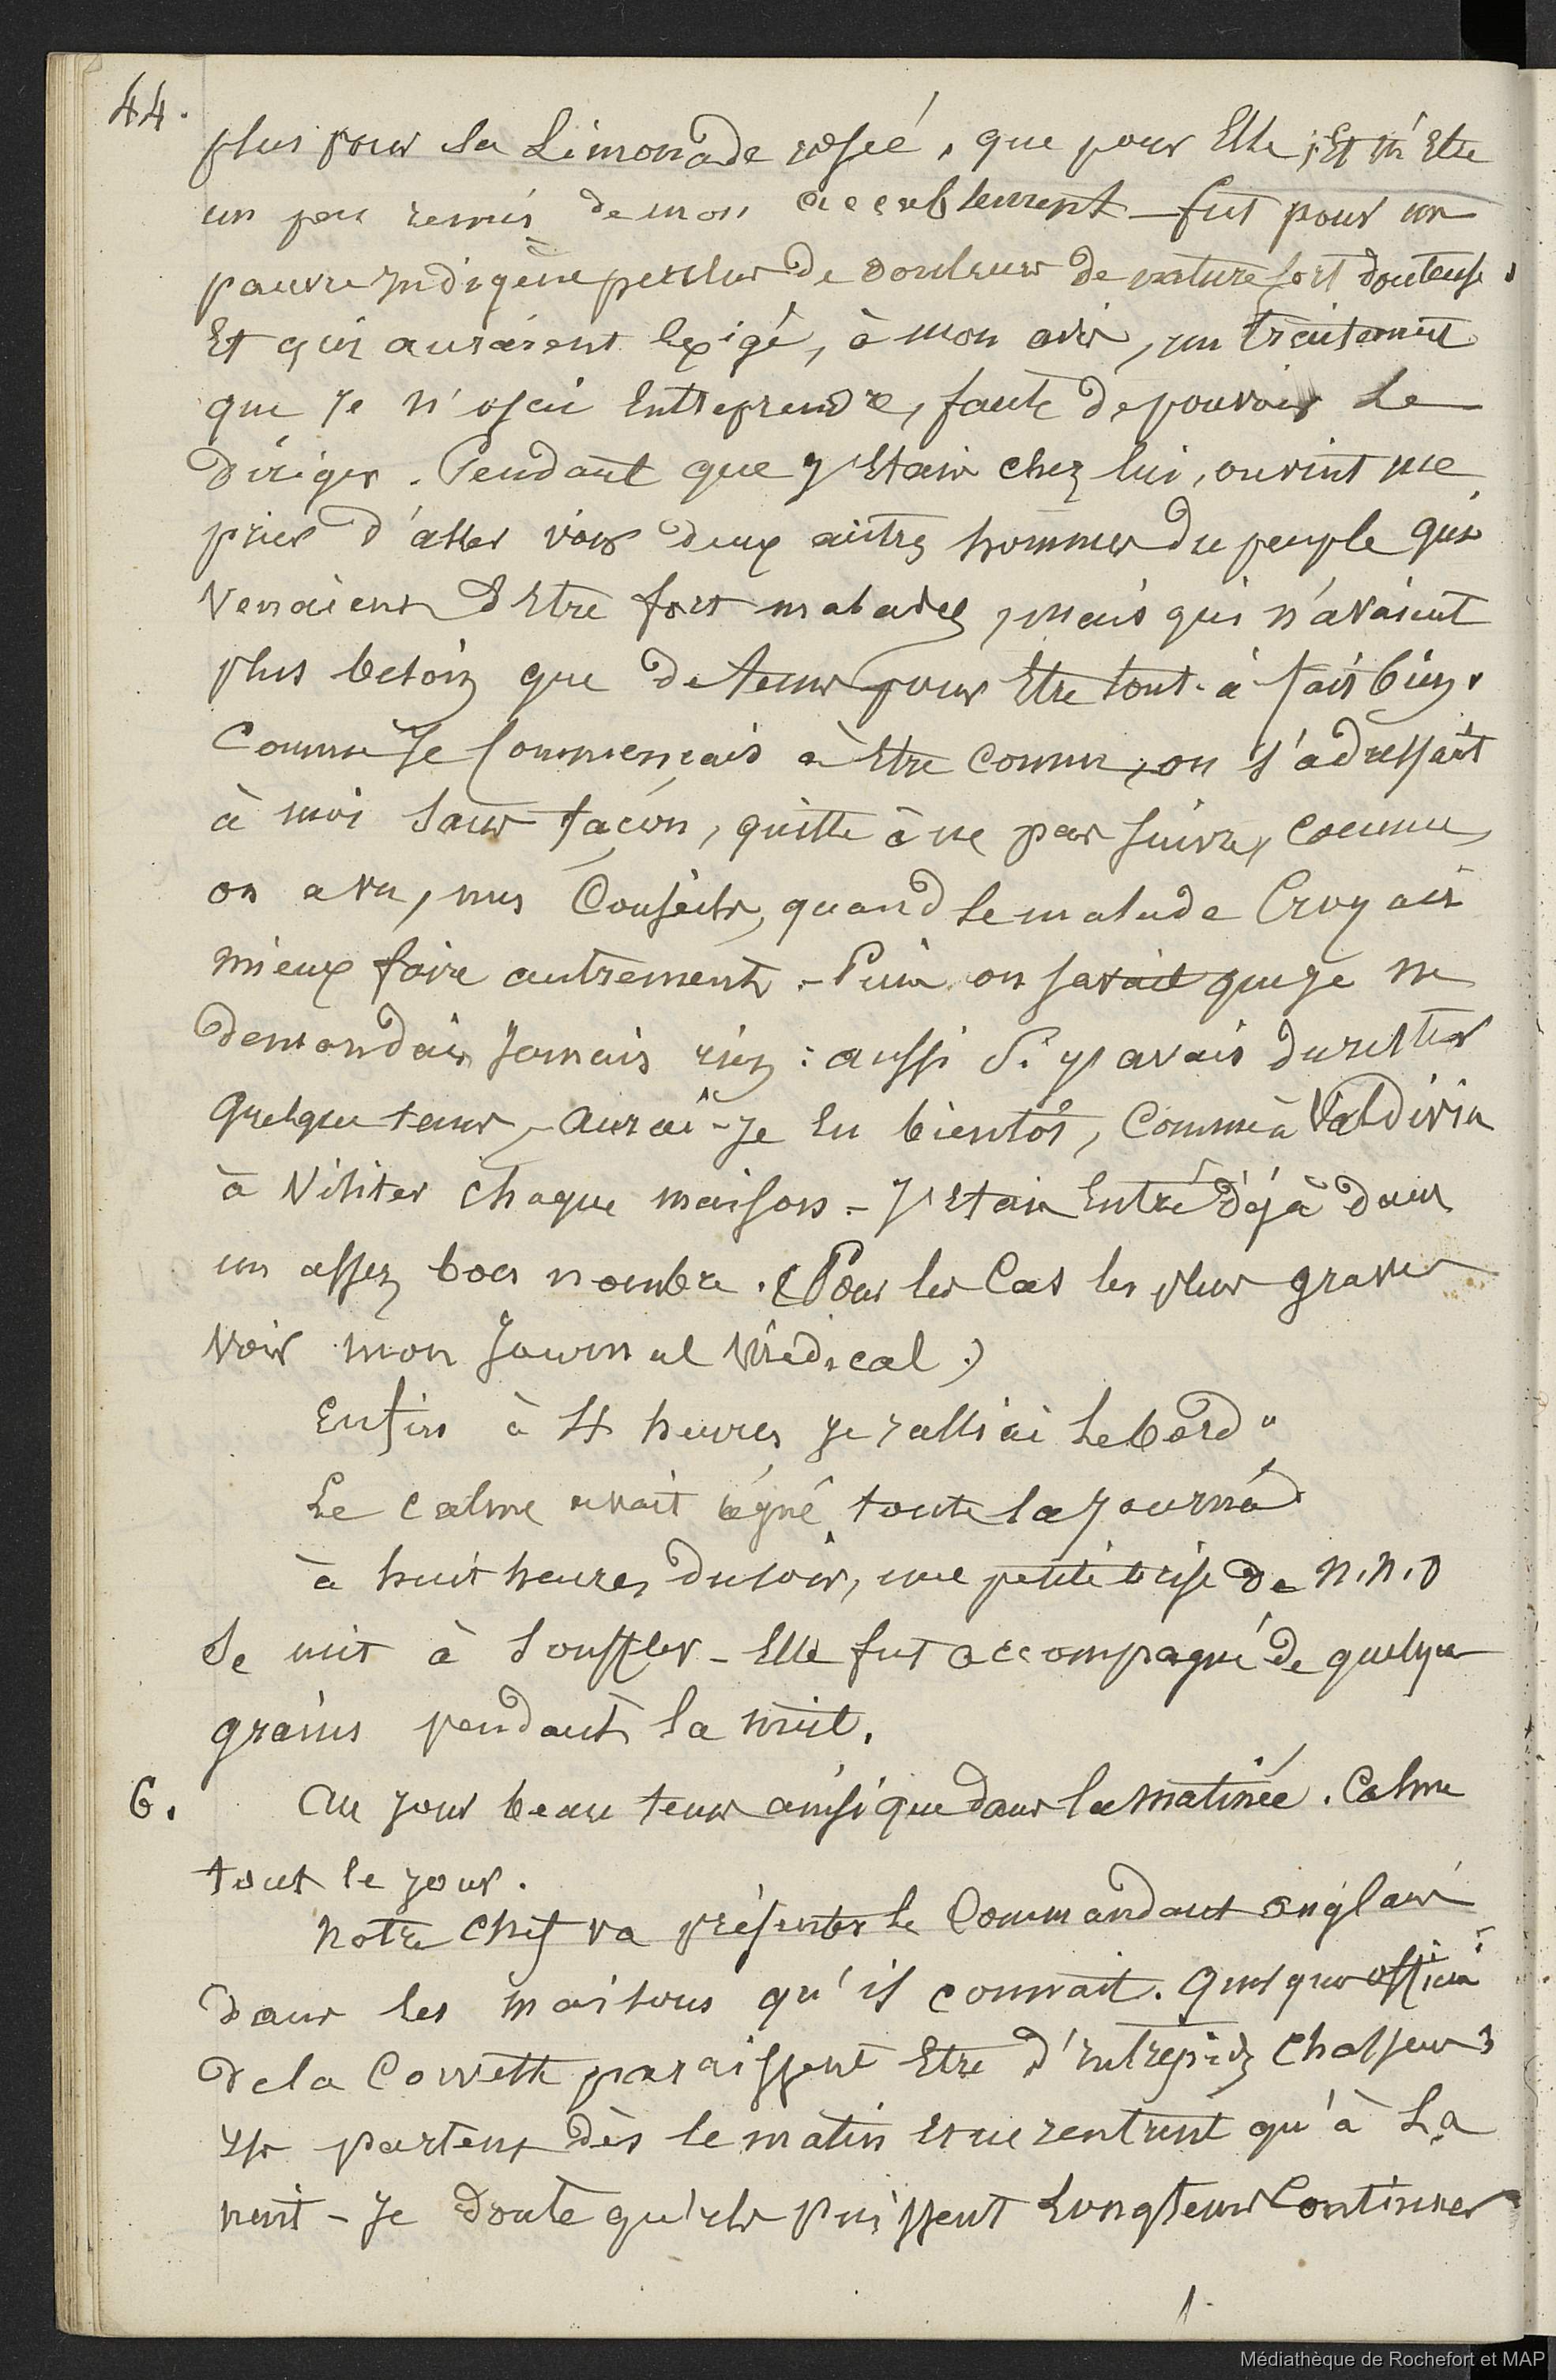 44.
plus pour la Limonade rosée, que pour Elle; Et m'être
un peu remis de mon accablement - fus pour un
pauvre indigène perclus de douleurs de nature fort douteuse,
Et qui auraient Exigé, à mon avis, un traitement
que je n'osai Entreprendre, faute de pouvoir le
Diriger. Pendant que j'Etais chez lui, on vint me
prier d'aller voir deux autres hommes du peuple qui
venaient d'Etre fort malades, mais qui n'avaient
plus besoin que de tems pour Etre tout-à fait bien.
Comme Je Commençais à Etre connu, on s'adressait
à moi sans façon, quitte à ne pas suivre, comme
on a vu, mes Conseils, quand le malade Croyait
mieux faire autrement. - Puis on savait que je ne
demandais Jamais rien: aussi Si j'avais du rester
quelque tems, aurai-je Eu bientôt, Comme à Valdivia
à visiter chaque maison - J'Etais Entré déjà dans
un assez bon nombre. (Pour les Cas les plus graves
voir mon Journal Médical.)
Enfin à 4 heures je ralliai le bord.
Le calme avait régné toute la journée
à huit heures du soir, une petite brise de N.N.O
Se mit à Souffler - Elle fut accompagné de quelques
grains pendant la nuit.
6. Au jour beau tems ainsi que dans la matinée. Calme
tout le jour.
Notre chef va présenter le Commandant anglais
dans les maisons qu'il connait. quelques officiers
de la Corvette paraissent Etre d'intrépides Chasseurs
ils partent dès le matin et ne rentrent qu'à La
nuit - Je doute qu'ils puissent Longtems Continuer
Médiathèque de Rochefort et MAP